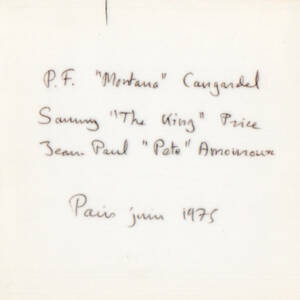 P.F. "Montana" Cangardel
Sammy "The King" Price
Jean Paul "Pete" Amouroux
Paris juin 1975